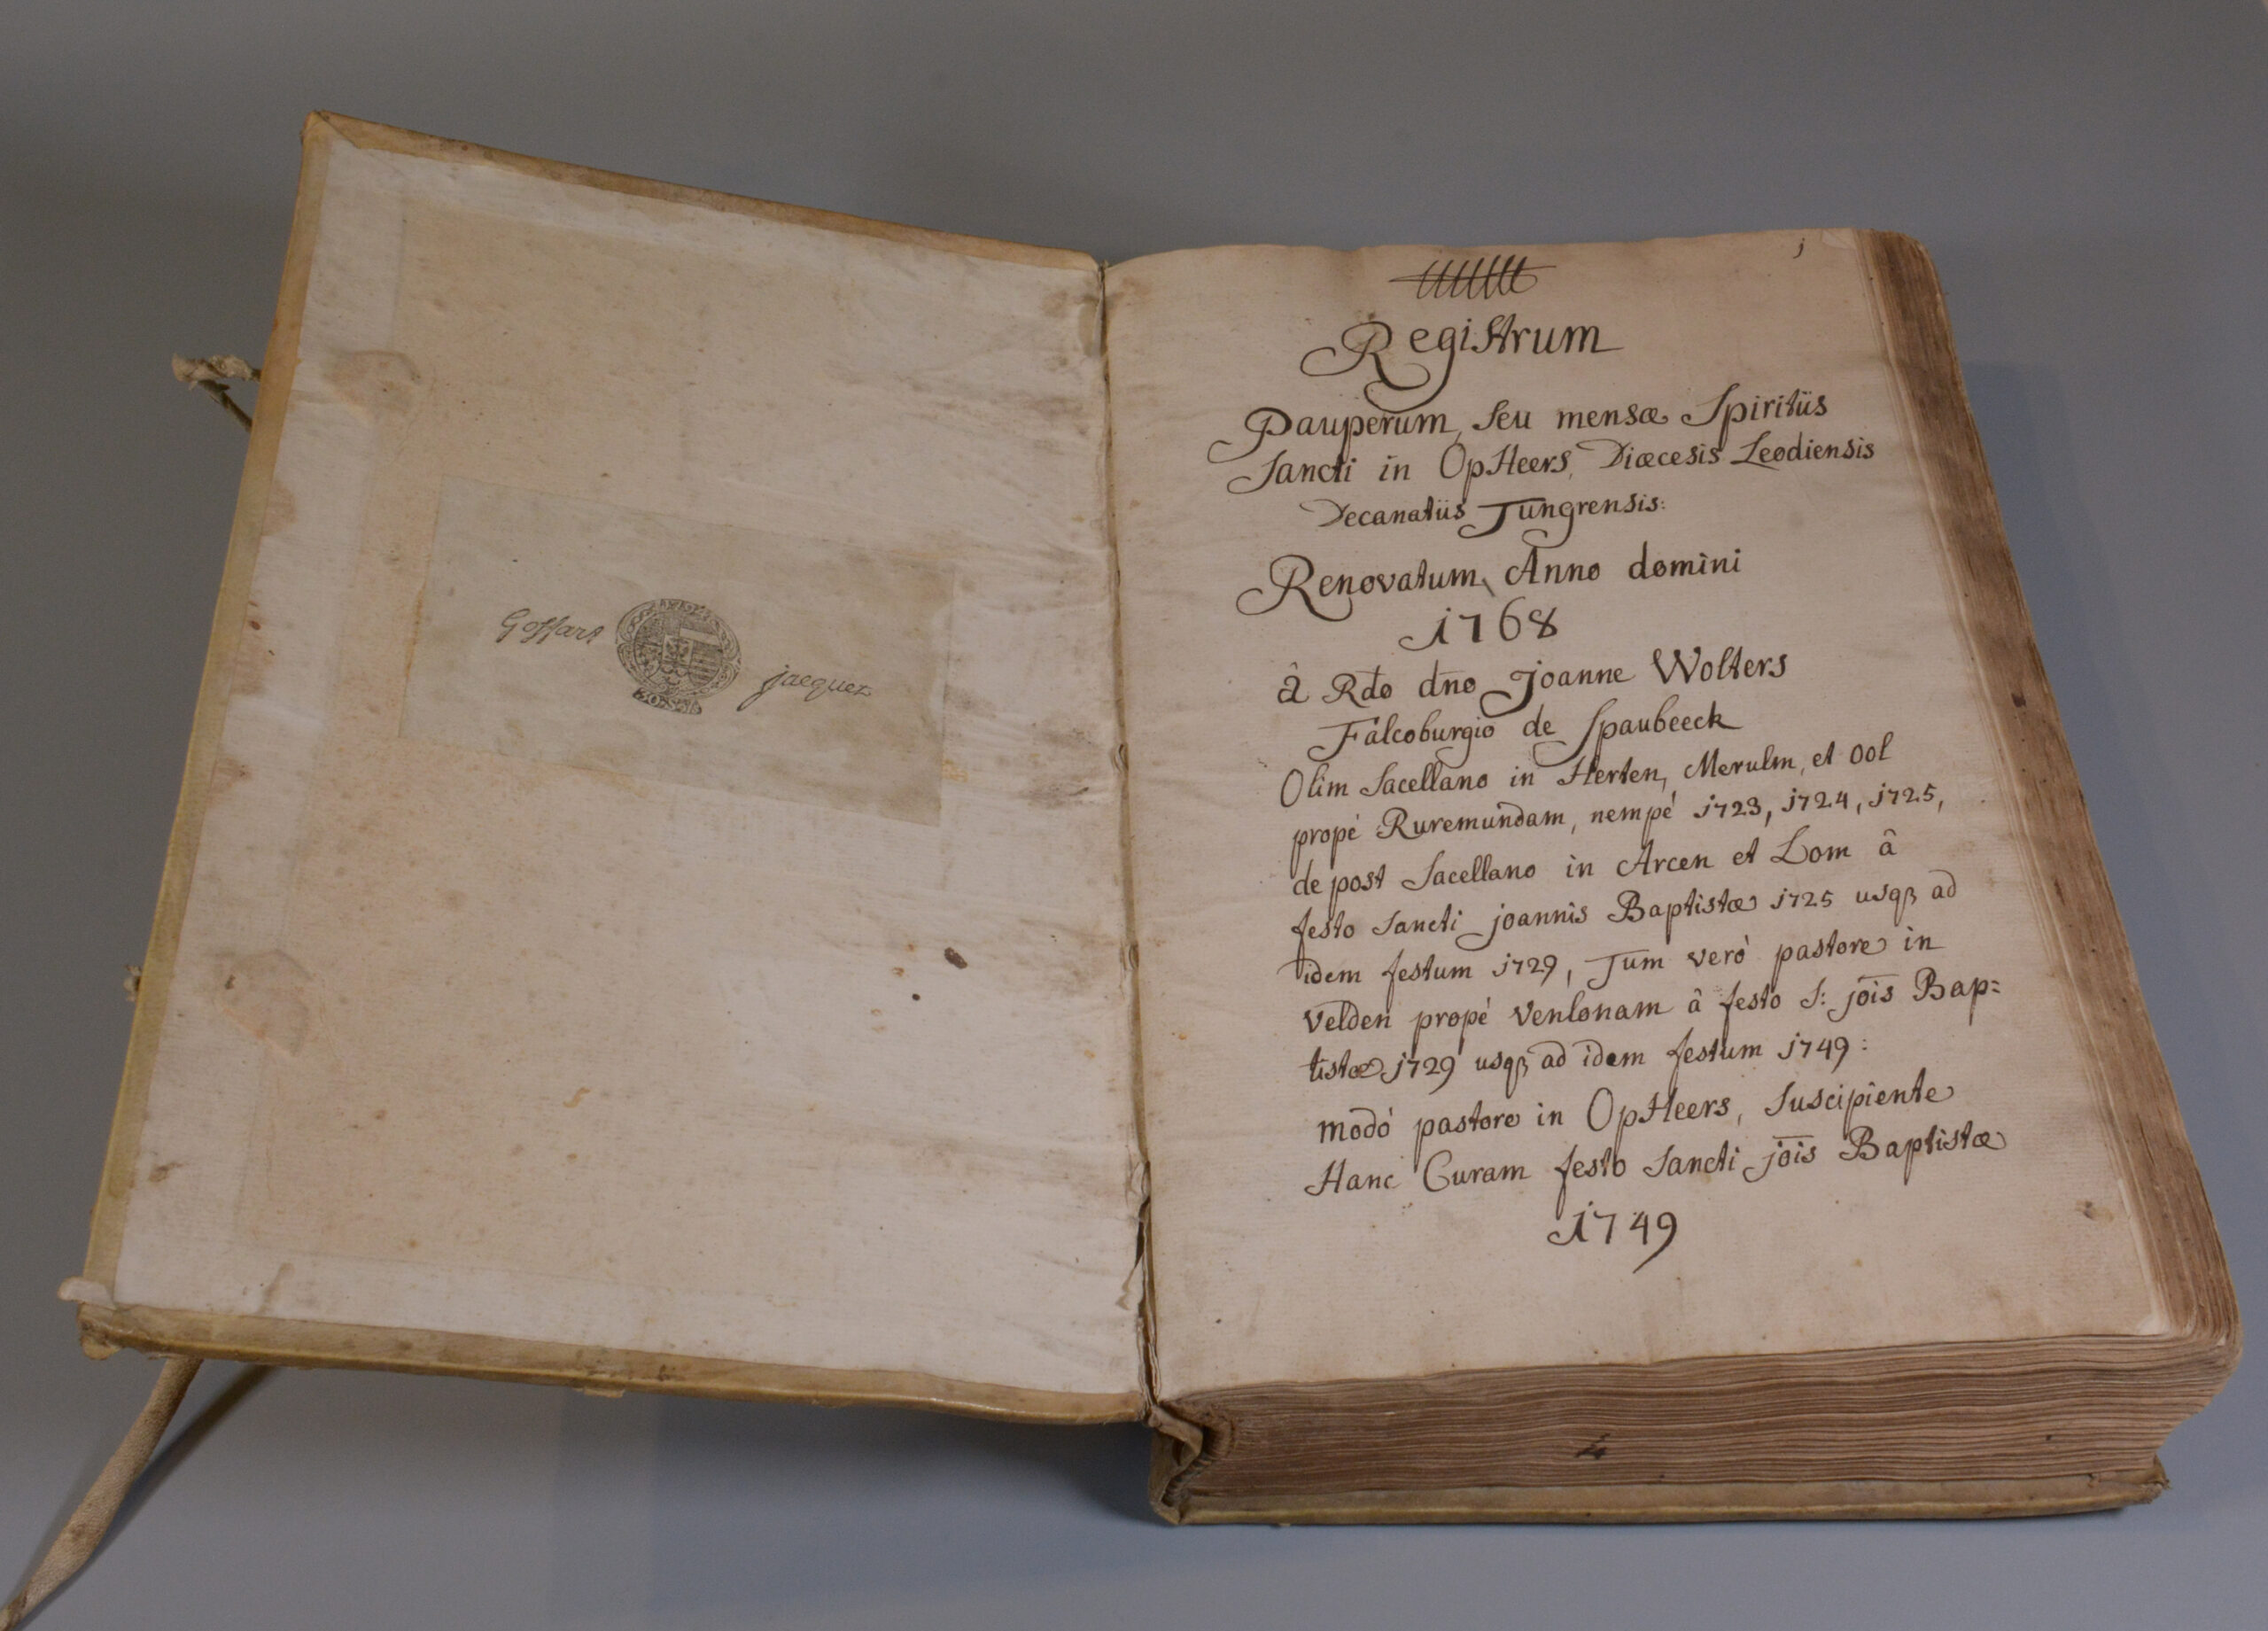 Goffart
jacquez
j
Registrum
Pauperum, seu mensæ Spiritüs
Sancti in OpHeers, Diœcesis Leodiensis
Decanatüs Tungrensis:
Renovatum, Anno domini
1768
â Rdo dno Joanne Wolters
Falcoburgio de Spaubeeck
Olim Sacellano in Herten, Merulm, et Ool
propè Ruremundam, nempè 1723, 1724, 1725,
de post Sacellano in Arcen et Lom â
festo Sancti joannis Baptistæ 1725 usqꝫ ad
idem festum 1729, Tum verò pastore in
Velden propè Venlonam â festo S: jois Bap=
tistæ 1729 usqꝫ ad idem festum 1749:
modò pastore in OpHeers, Suscipiente
Hanc Curam festo Sancti jois Baptistæ
1749